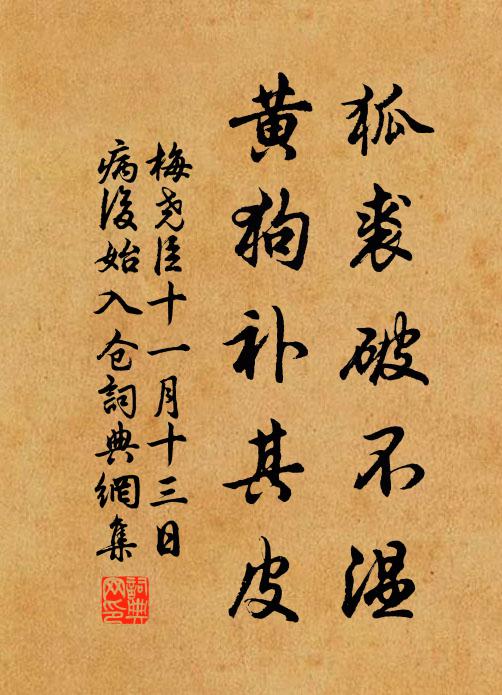 狐裘破不温
黄狗补其皮
梅尧臣十一月十三日
病后始入仓词典網集
詞典网印